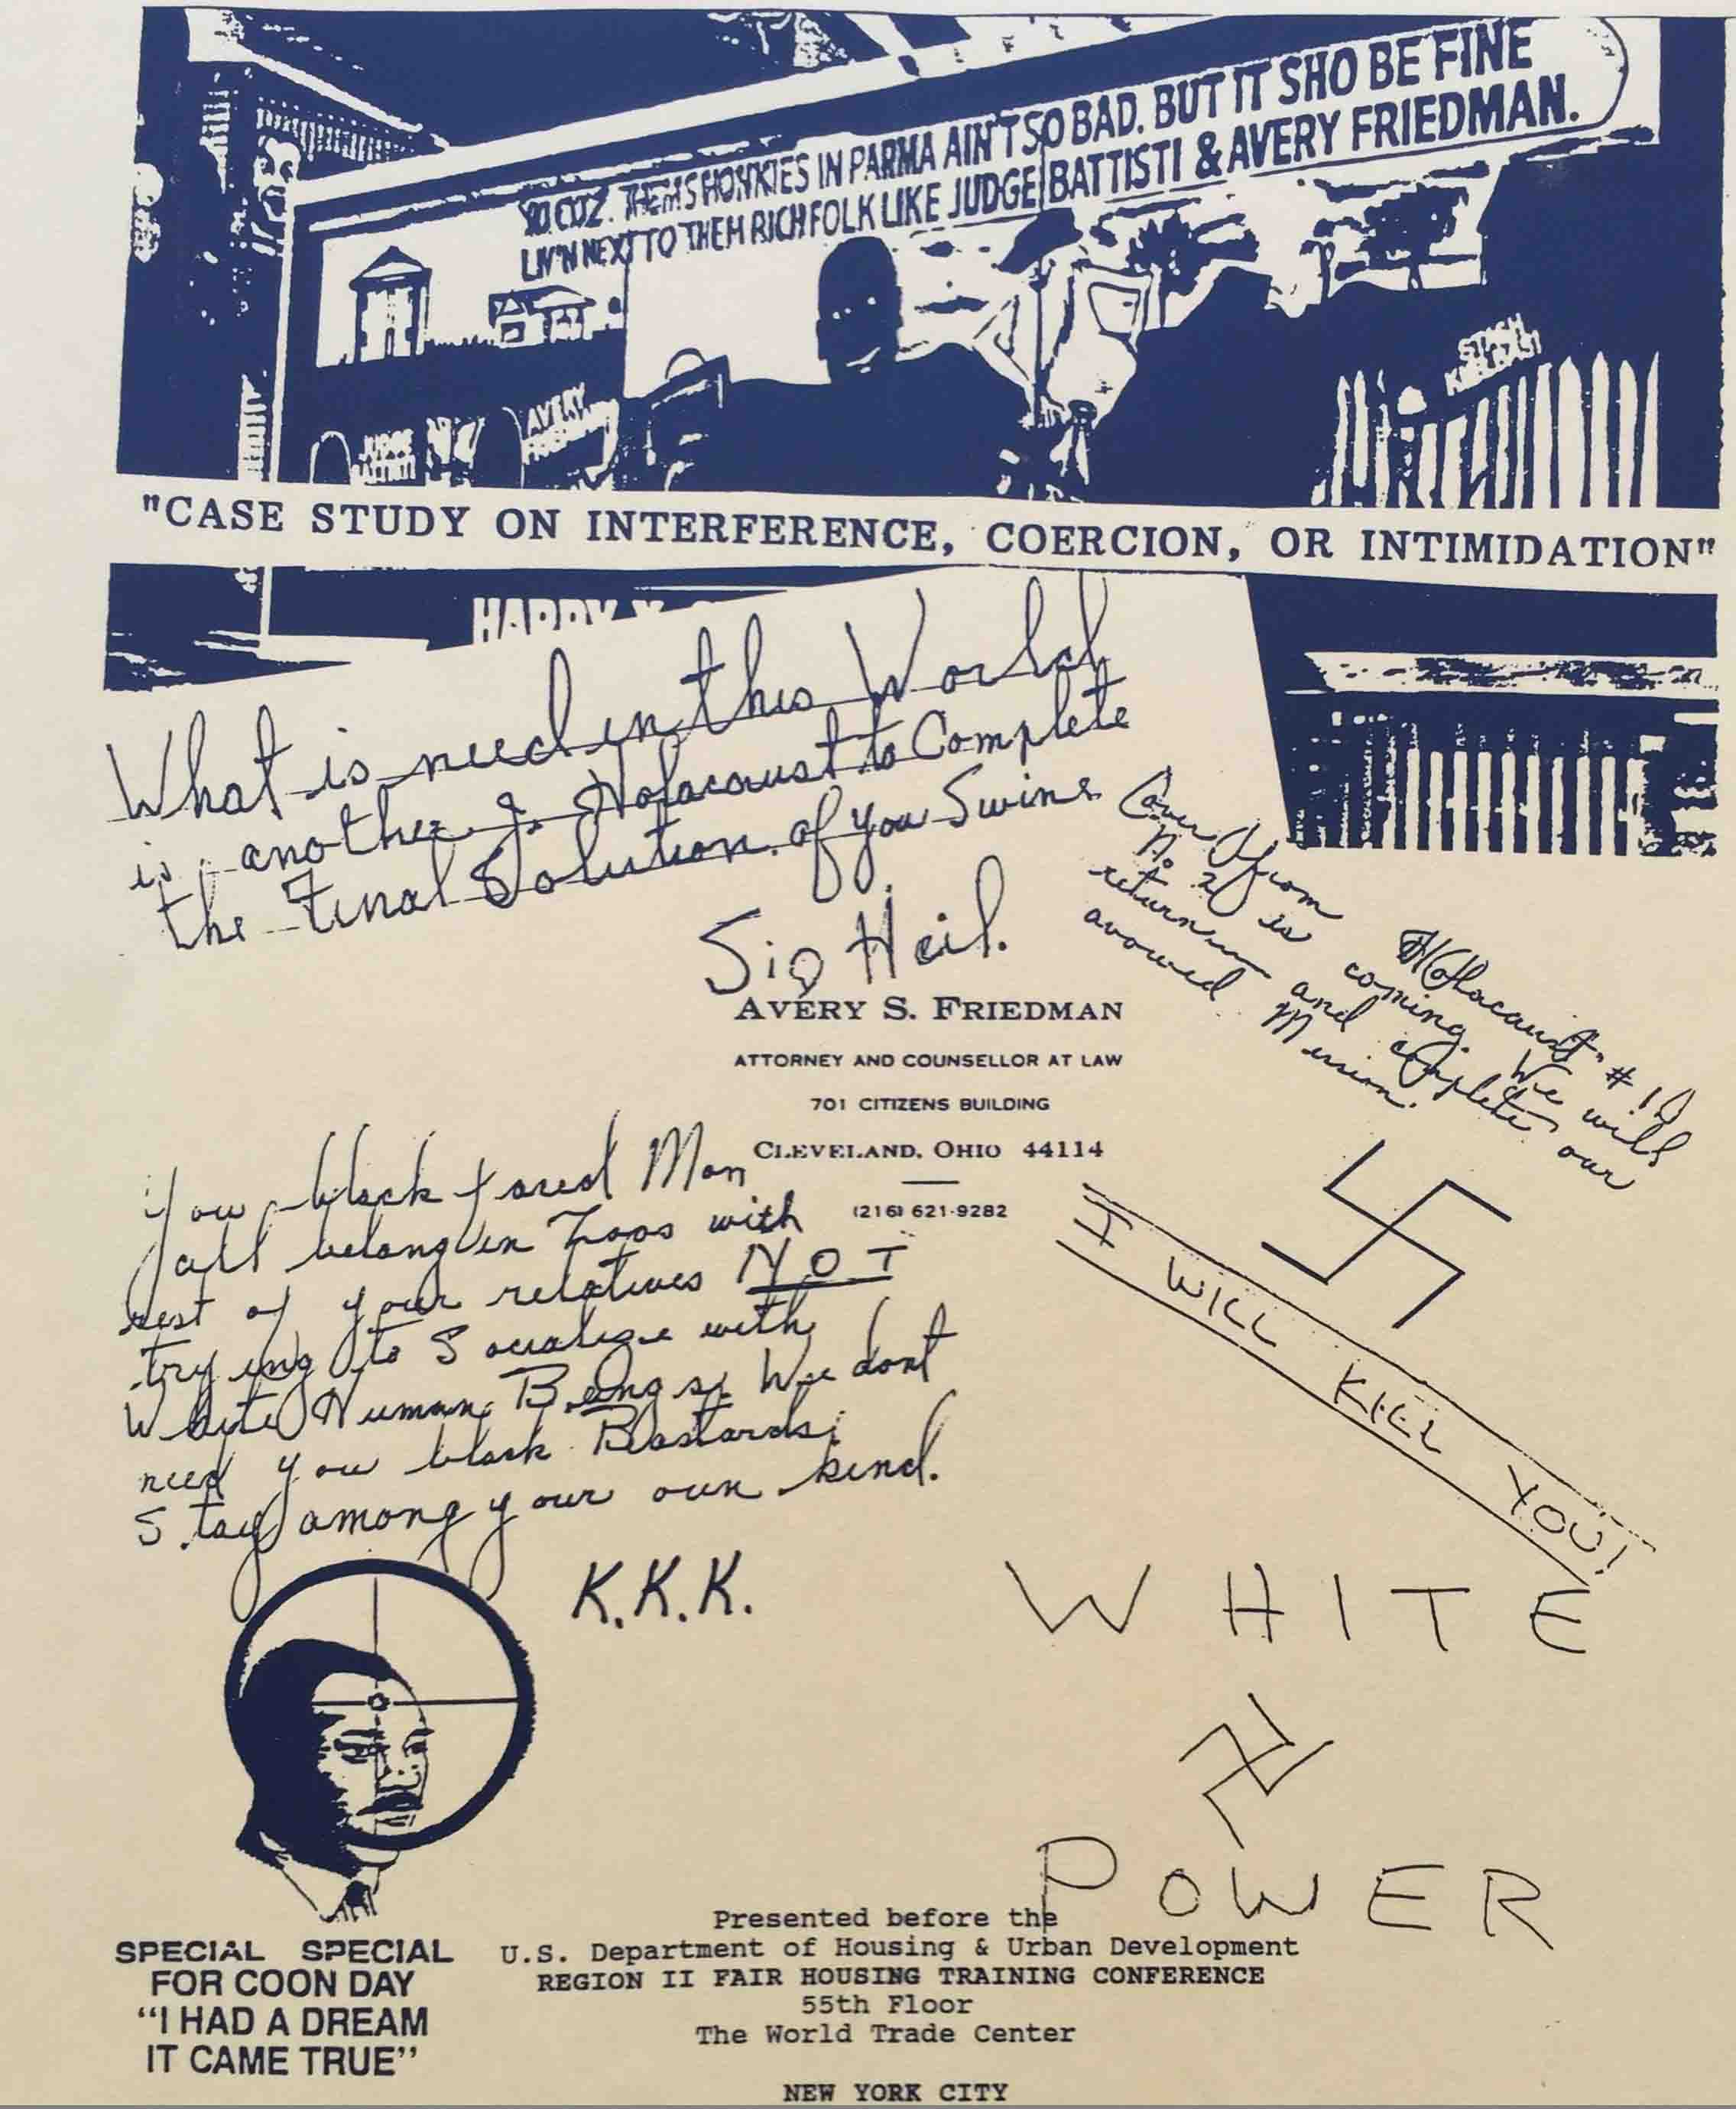 YO COZ. THEMS HONKIES IN PARMA AIN'T SO BAD. BUT IT SHO BE FINE
LIV'N NEXT TO THEM RICH FOLK LIKE JUDGE BATTISTI & AVERY FRIEDMAN.
JUDGE
BATTISTI
AVERY
FRIEDMAN
STASH
"CASE STUDY ON INTERFERENCE, COERCION, OR INTIMIDATION"
HAPPY
What is need in this World
is another Holacaust to Complete
the Final Solution of you Swine
Sig Heil.
Cover from Holacaust #1
No 2 is coming. We will
return and complete our
avowed Mission.
AVERY S. FRIEDMAN
ATTORNEY AND COUNSELLOR AT LAW
701 CITIZENS BUILDING
CLEVELAND, OHIO 44114
(216) 621-9282
You black faced Man
all belong in Zoos with
rest of your relatives NOT
trying to Socialize with
White Human Beings. We dont
need you black Bastards.
Stay among your own kind.
K.K.K.
I WILL KILL YOU!
WHITE
POWER
SPECIAL SPECIAL
FOR COON DAY
“I HAD A DREAM
IT CAME TRUE”
Presented before the
U.S. Department of Housing & Urban Development
REGION II FAIR HOUSING TRAINING CONFERENCE
55th Floor
The World Trade Center
NEW YORK CITY